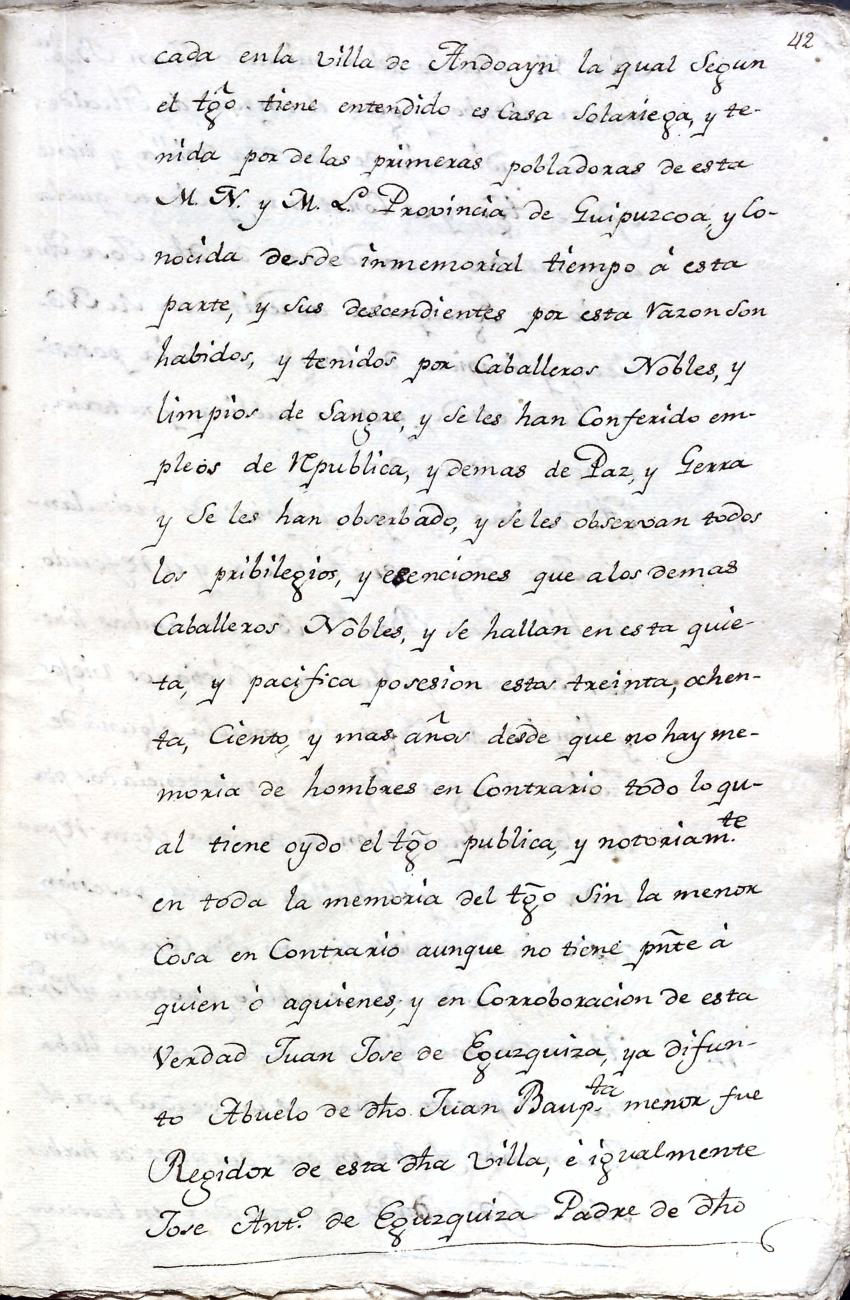 42
cada enla villa de Andoayn la qual Segun
el tg̃o tiene entendido es Casa Solariega, y te-
nida por de las primeras pobladoras de esta
M. N. y M. L. Provincia de Guipuzcoa, y Co-
nocida desde inmemorial tiempo á esta
parte, y sus descendientes por esta Razon son
habidos, y tenidos por Caballeros Nobles, y
limpios de Sangre, y se les han Conferido em-
pleos de Rpublica, y demas de Paz, y Gerra
y Se les han obserbado, y se les observan todos
los pribilegios, y esenciones que alos demas
Caballeros Nobles, y se hallan en esta quie-
ta, y pacifica posesion estos treinta, ochen-
ta, Ciento, y mas años desde que no hay me-
moria de hombres en Contrario todo lo qu-
al tiene oydo el tg̃o publica, y notoriam.te
en toda la memoria del tg̃o Sin la menor
Cosa en Contrario aunque no tiene pñte á
quien ò aquienes, y en Corroboracion de esta
Verdad Juan Jose de Eguzquiza, ya difun-
to Abuelo de dho Juan Baup.ta menor fue
Regidor de esta dha Villa, é igualmente
Jose Ant.o de Eguzquiza Padre de dho